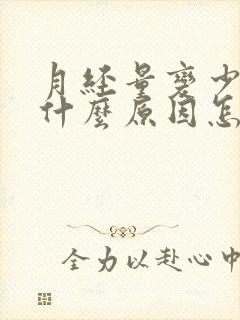 月经量变少
什麽原因怎
全力以赴心中